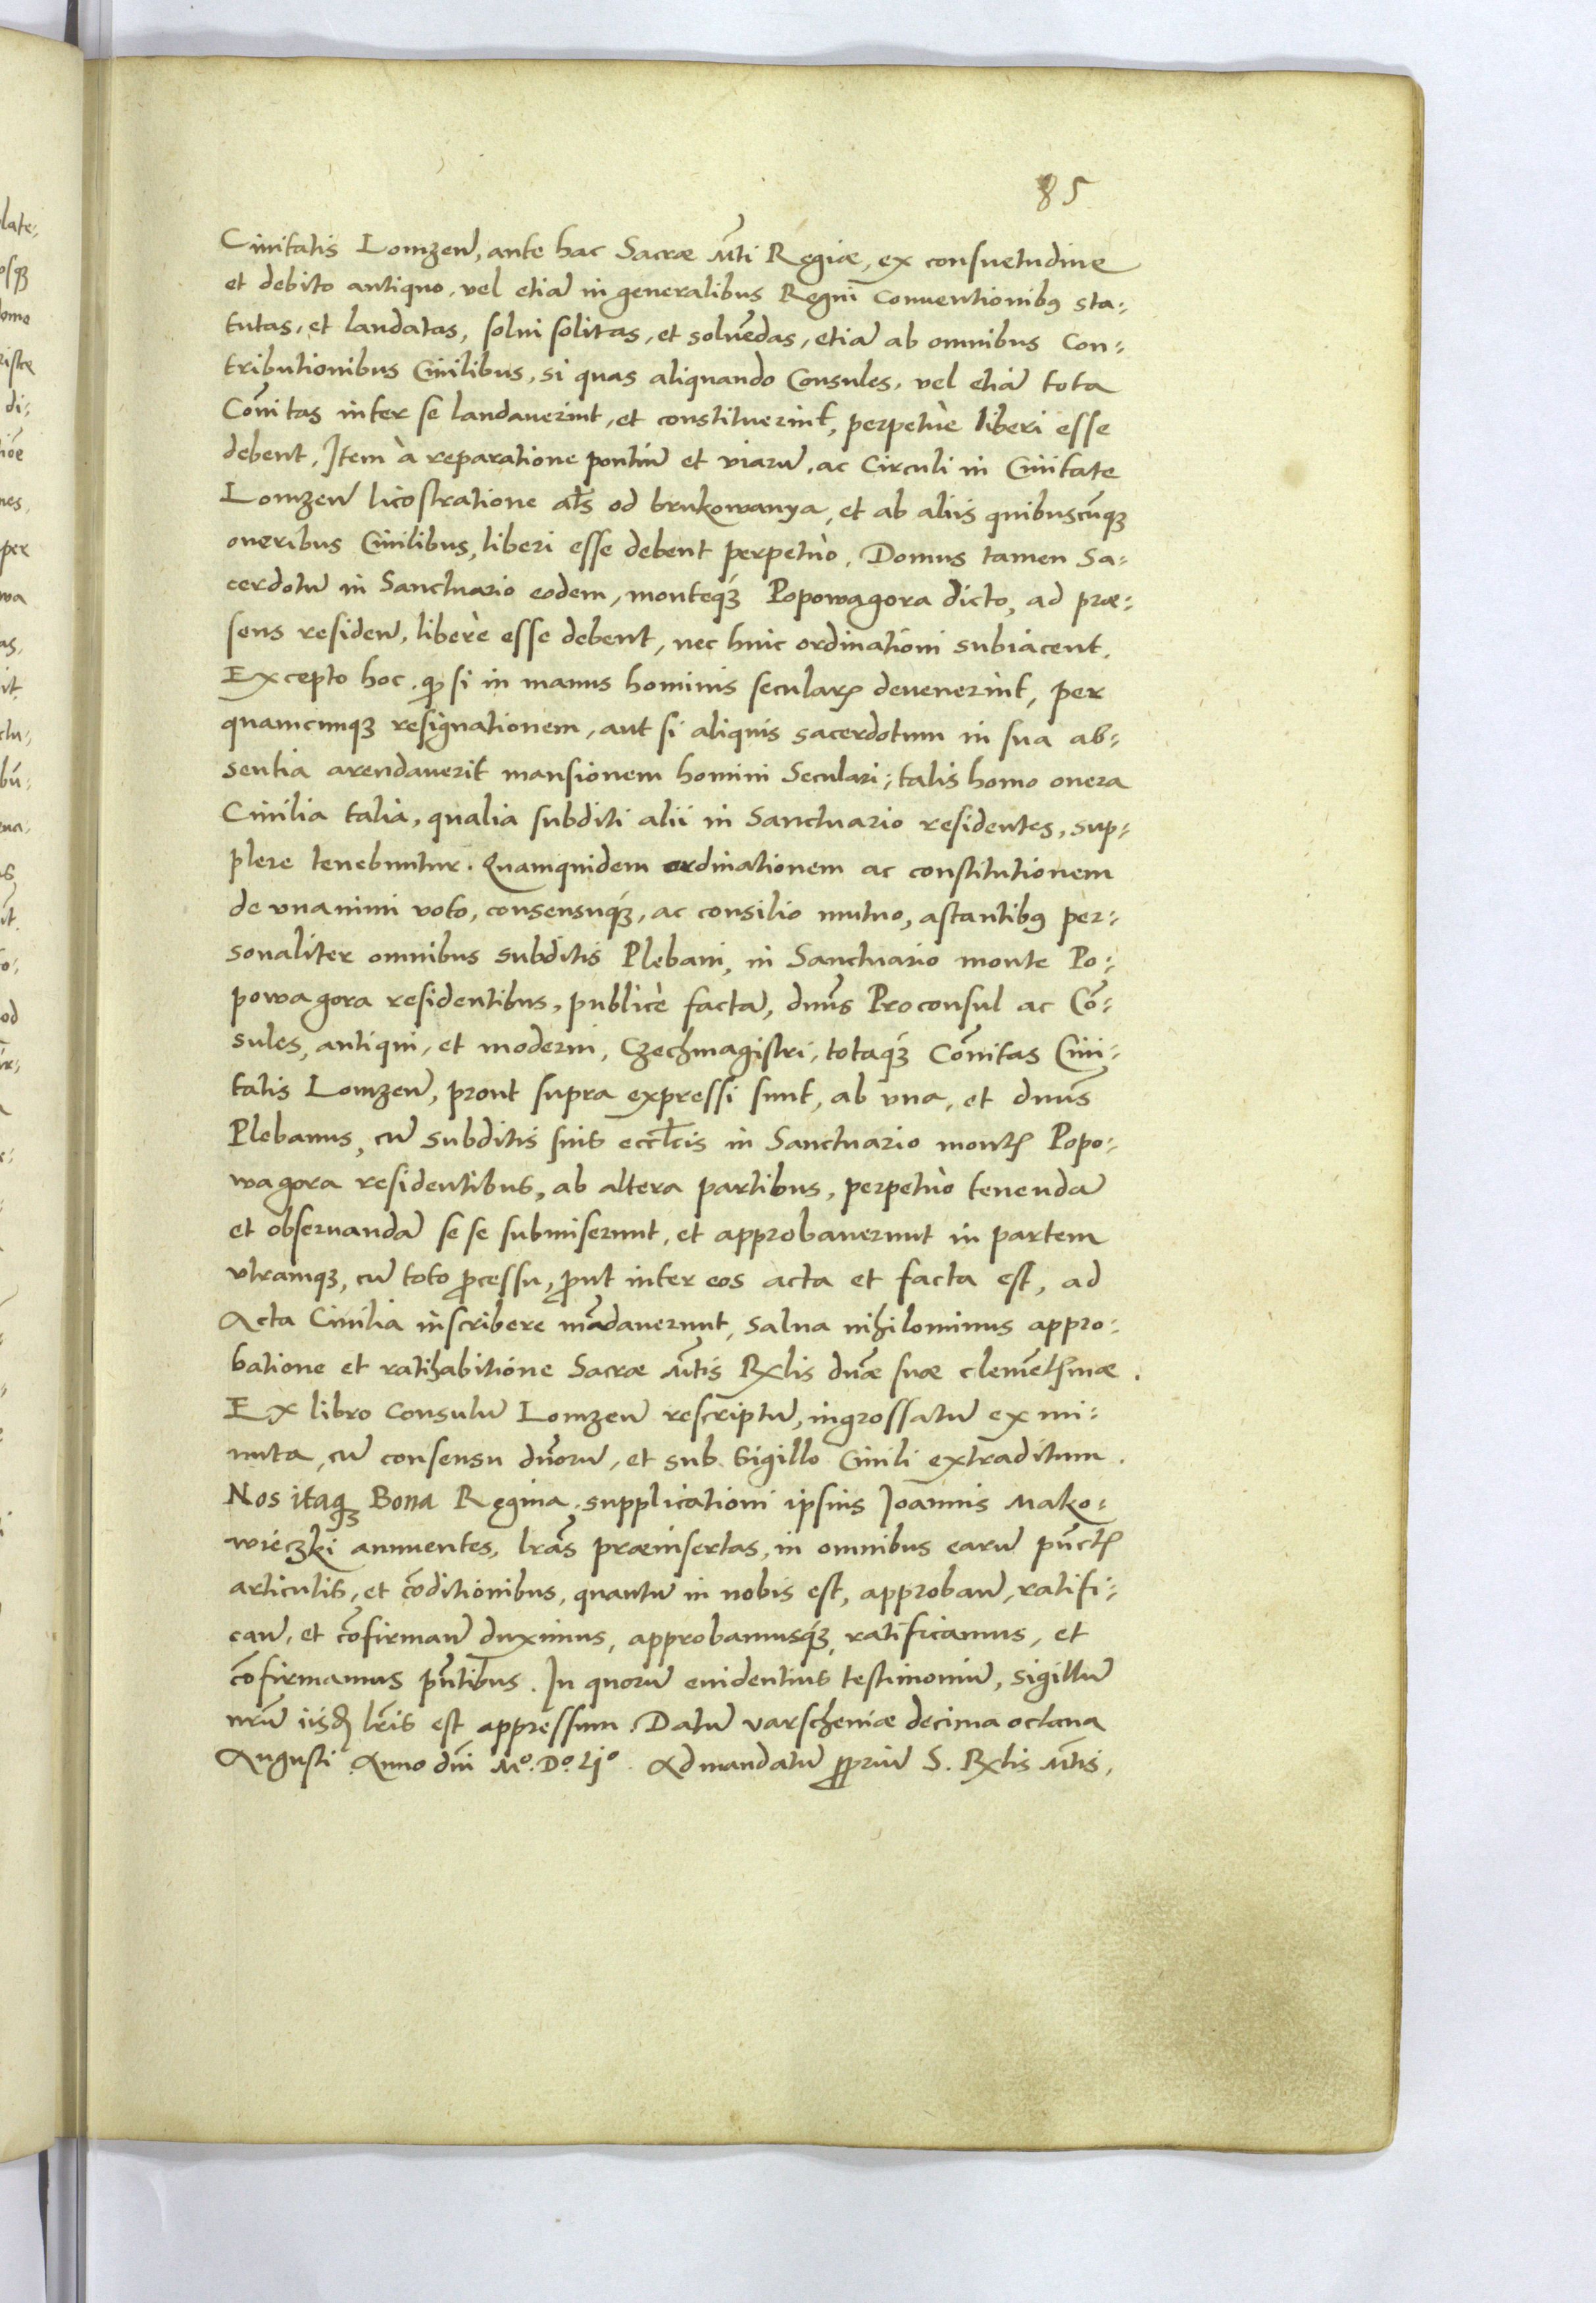 85
Ciuitatis Lomzeñ, ante hac Sacræ Mt̃i Regiæ, ex consuetudine
et debito antiquo, vel etiã in generalibus Regni Conuentionibꝰ sta:
tutas, et laudatas, solui solitas, et soluẽdas, etiã ab omnibus Con:
tributionibus Ciuilibus, si quas aliquando Consules, vel etiã tota
Com̃itas inter se laudauerint, et constituerint, perpetuè liberi esse
debent, Item à reparatione pontiũ et viarũ, ac Circuli in Ciuitate
Lomzeñ licostratione al̃s od brukowanya, et ab aliis quibuscũqꝫ
oneribus Ciuilibus, liberi esse debent perpetuò. Domus tamen Sa:
cerdotũ in Sanctuario eodem, monteqꝫ Popowagora dicto, ad præ:
sens resideñ, liberè esse debent, nec huic ordinationi subiacent.
Excepto hoc, ꝙ si in manus hominis secularꝭ deuenerint, per
quamcunqꝫ resignationem, aut si aliquis sacerdotum in sua ab:
sentia arendauerit mansionem homini Seculari; talis homo onera
Ciuilia talia, qualia subditi alii in Sanctuario residentes, sup:
plere tenebuntur. Quamquidem ordinationem ac constitutionem
de vnanimi voto, consensuqꝫ, ac consilio mutuo, astantibꝰ per:
sonaliter omnibus subditis Plebani, in Sanctuario monte Po:
powagora residentibus, publicè factã, dñus Proconsul ac Cõ:
sules, antiqui, et moderni, Czechmagistri, totaqꝫ Com̃itas Ciui:
tatis Lomzeñ, prout supra expressi sunt, ab vna, et dñus
Plebanus, cũ subditis suis eccl̃cis in Sanctuario montꝭ Popo:
wagora residentibus, ab altera partibus, perpetuò tenendã
et obseruandã se se submiserunt, et approbauerunt in partem
vtramqꝫ, cũ toto ꝓcessu, ꝓut inter eos acta et facta est, ad
Acta Ciuilia inscribere mãdauerunt, salua nihilominus appro:
batione et ratihabitione Sacræ Mt̃is Rx̃lis dñæ suæ clemẽtꝭmæ.
Ex libro Consulũ Lomzeñ rescriptũ, ingrossatũ ex mi:
nuta, cũ consensu dñorũ, et sub Sigillo Ciuili extraditum.
Nos itaqꝫ Bona Regina, supplicationi ipsius Joannis Mako:
wieczki annuentes, lr̃as præinsertas, in omnibus earũ pũctꝭ
articulis, et cõditionibus, quantũ in nobis est, approbañ, ratifi:
cañ, et cõfirmañ duximus, approbamusqꝫ, ratificamus, et
cõfirmamus pñtibus. In quorũ euidentius testimoniũ, sigillũ
nr̃ũ iisdꝫ lr̃is est appressum. Datũ varscheuiæ decima octaua
Augusti. Anno dñi Mº. Dº. Ljº. Ad mandatũ ꝓpriũ S. Rx̃lis Mt̃is,